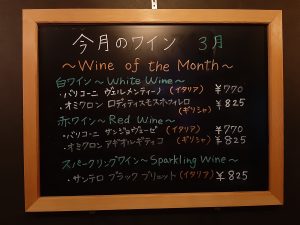 今月のワイン 3月
～Wine of the Month～
白ワイン～White Wine～
・バリコーニ ヴェルメンティーノ (イタリア) ¥770
・オミクロン ロディティスモスホフィレロ (ギリシャ) ¥825
赤ワイン～Red Wine～
・バリコーニ サンジョヴェーゼ (イタリア) ¥770
・オミクロン アギオルギティコ (ギリシャ) ¥825
スパークリングワイン～Sparkling Wine～
・サンテロ ブラック ブリュット (イタリア) ¥825